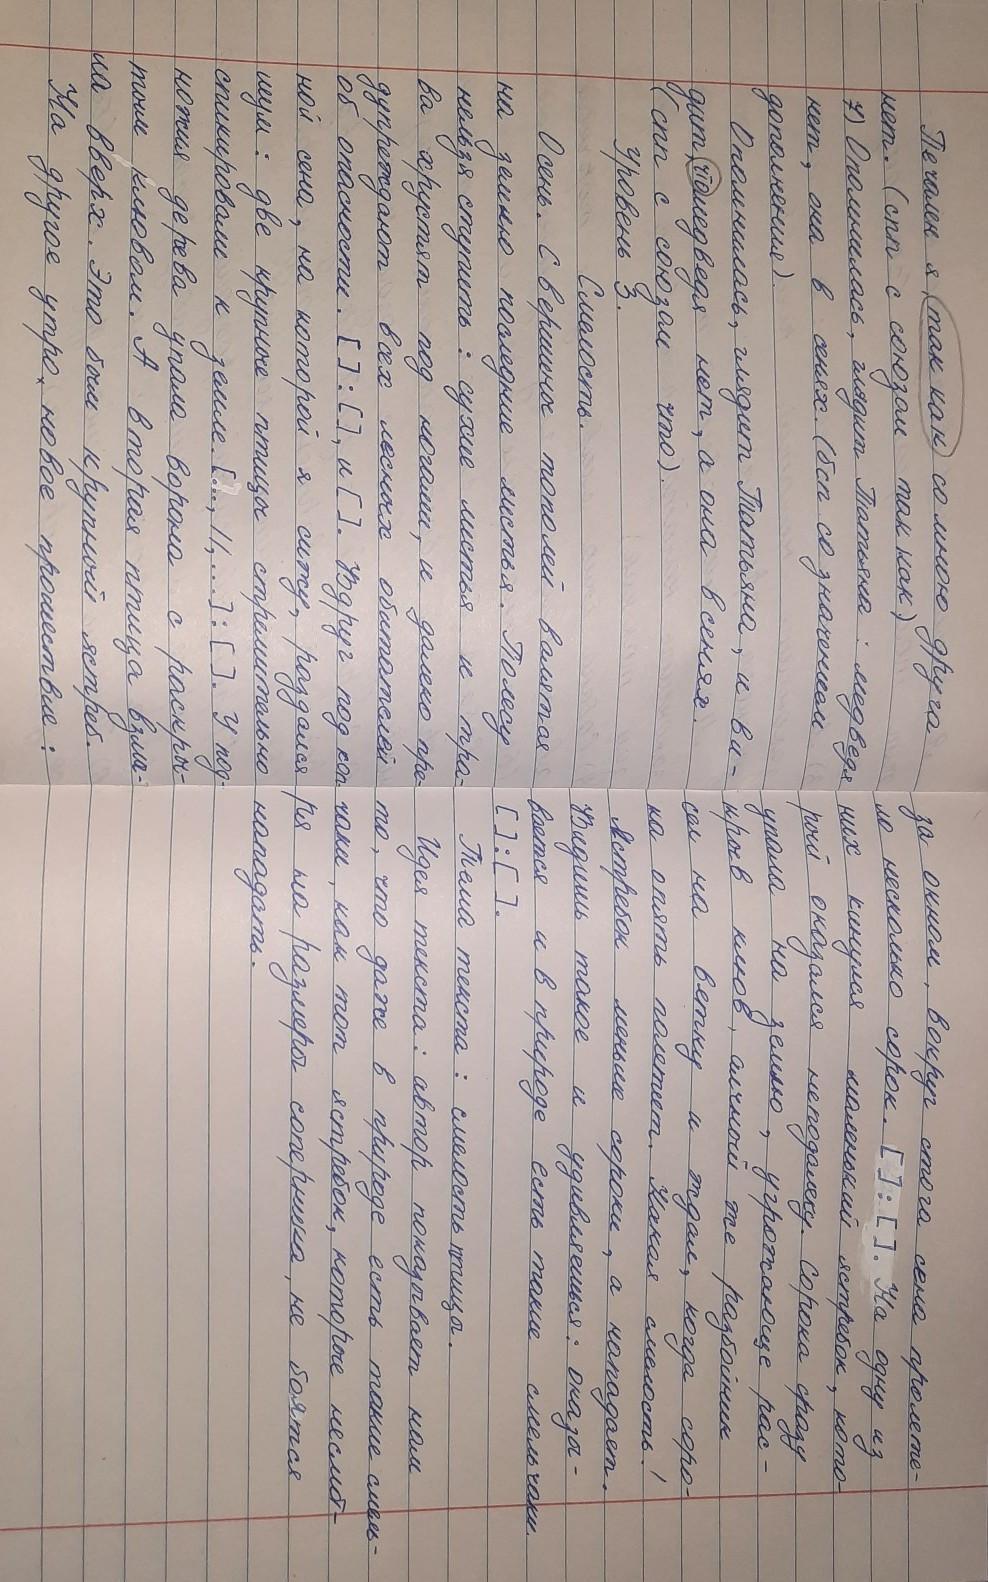 Печален я, (так как) со мною друга
нет. (спп с союзом так как)
7) Опомнилась, глядит Татьяна: медведя
нет, она в сенях. (бсп со значением
дополнения).
Опомнилась, глядит Татьяна, и ви-
дит, что медведя нет, а она в сенях.
(спп с союзом что).
Уровень 3.
Смелость.
Осень. С вершин тополей валятся
на землю последние листья. По лесу
нельзя ступить: сухие листья и тра-
ва хрустят под ногами, и далеко пре-
дупреждают всех лесных обитателей
об опасности. [ ]: [ ], и [ ]. Вдруг под коп-
ной сена, на которой я сижу, раздался
шум: две крупные птицы стремительно
спикировали к земле. [..., ||, ...]: [ ]. У под-
ножия дерева упала ворона с раскры-
тым клювом. А вторая птица взмы-
ла вверх. Это был крупный ястреб.
На другое утро новое происшествие:
за окном, вокруг стога сена пролете-
ло несколько сорок. [ ]: [ ]. На одну из
них кинулся маленький ястребок, кото-
рый оказался неподалеку. Сорока сразу
упала на землю, угрожающе рас-
крыв клюв, а
же разбойник
сел на ветку и ждал, когда соро-
ка опять полетит. Какая смелость!
Ястребок меньше сороки, а нападает.
Видишь такое и удивляешься: оказы-
вается и в природе есть такие смельчаки.
[ ]: [ ].
Тема текста: смелость птицы.
Идея текста: автор показывает нам
то, что даже в природе есть такие смель-
чаки, как тот ястребок, которые несмот-
ря на размеры соперника, не боятся
нападать.